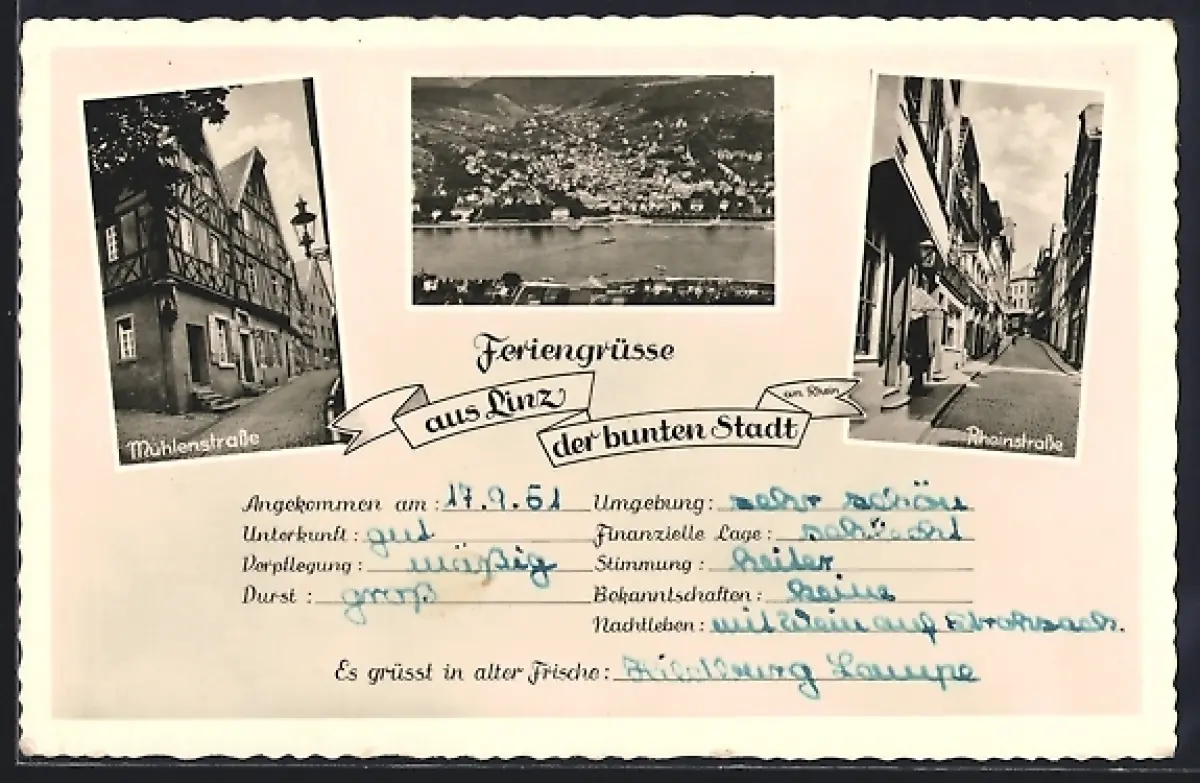 Mühlenstraße
Rheinstraße
Feriengrüsse
aus Linz
am Rhein
der bunten Stadt
Angekommen am: 17.9.51
Unterkunft: gut
Verpflegung: mäßig
Durst: groß
Umgebung: sehr schön
Finanzielle Lage: schlecht
Stimmung: heiter
Bekanntschaften: keine
Nachtleben: mit Wein auf Strohsack.
Es grüsst in alter Frische: Lampe